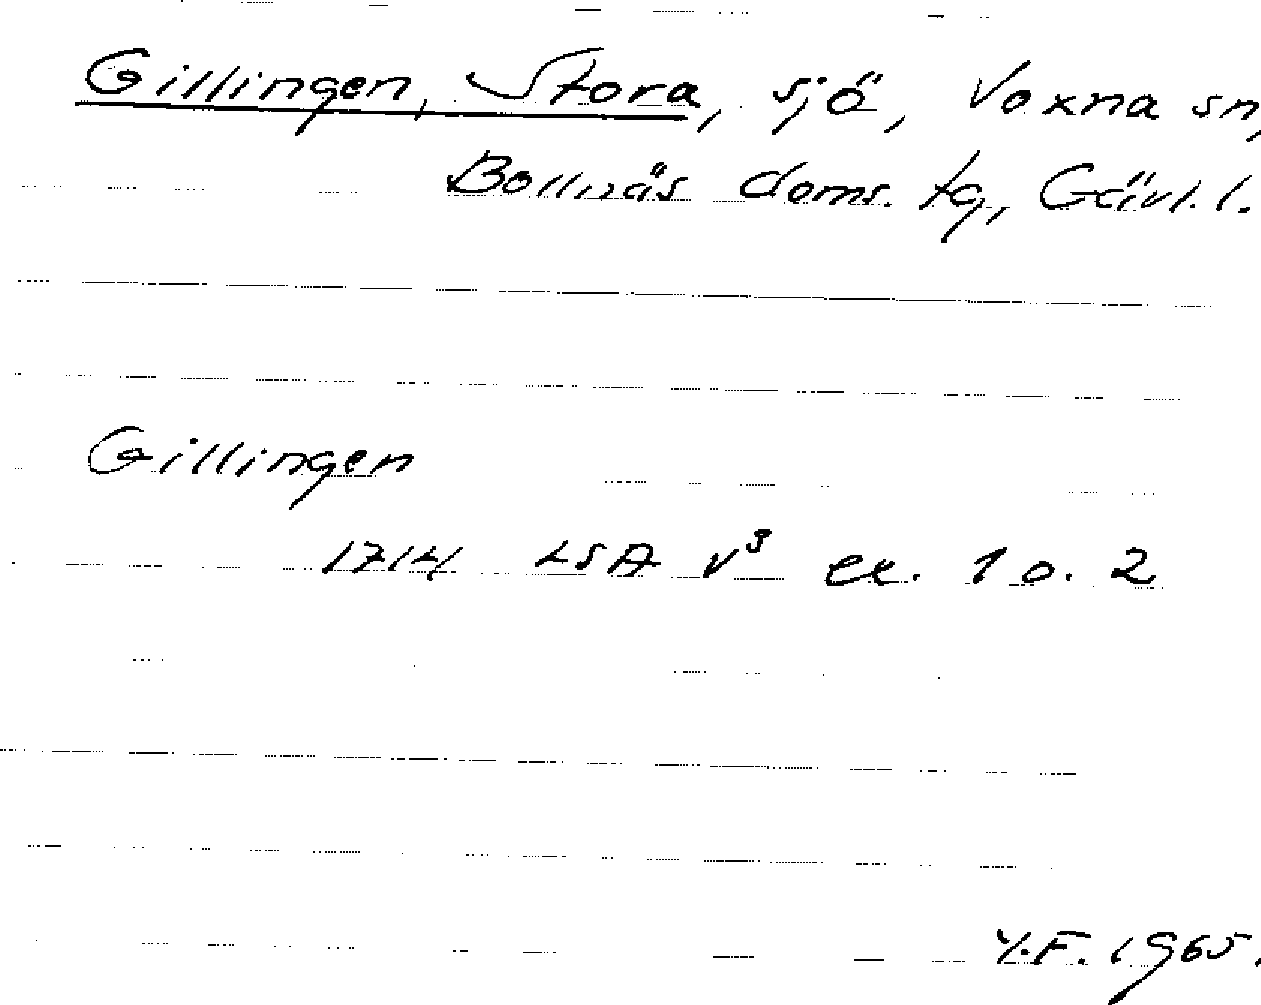 Gillingen, Stora, sjö, Voxna sn,
Bollnäs doms. tg, Gävl. l.
Gillingen
1714 LSA v³ ex. 1 o. 2
Y.F. 1965.